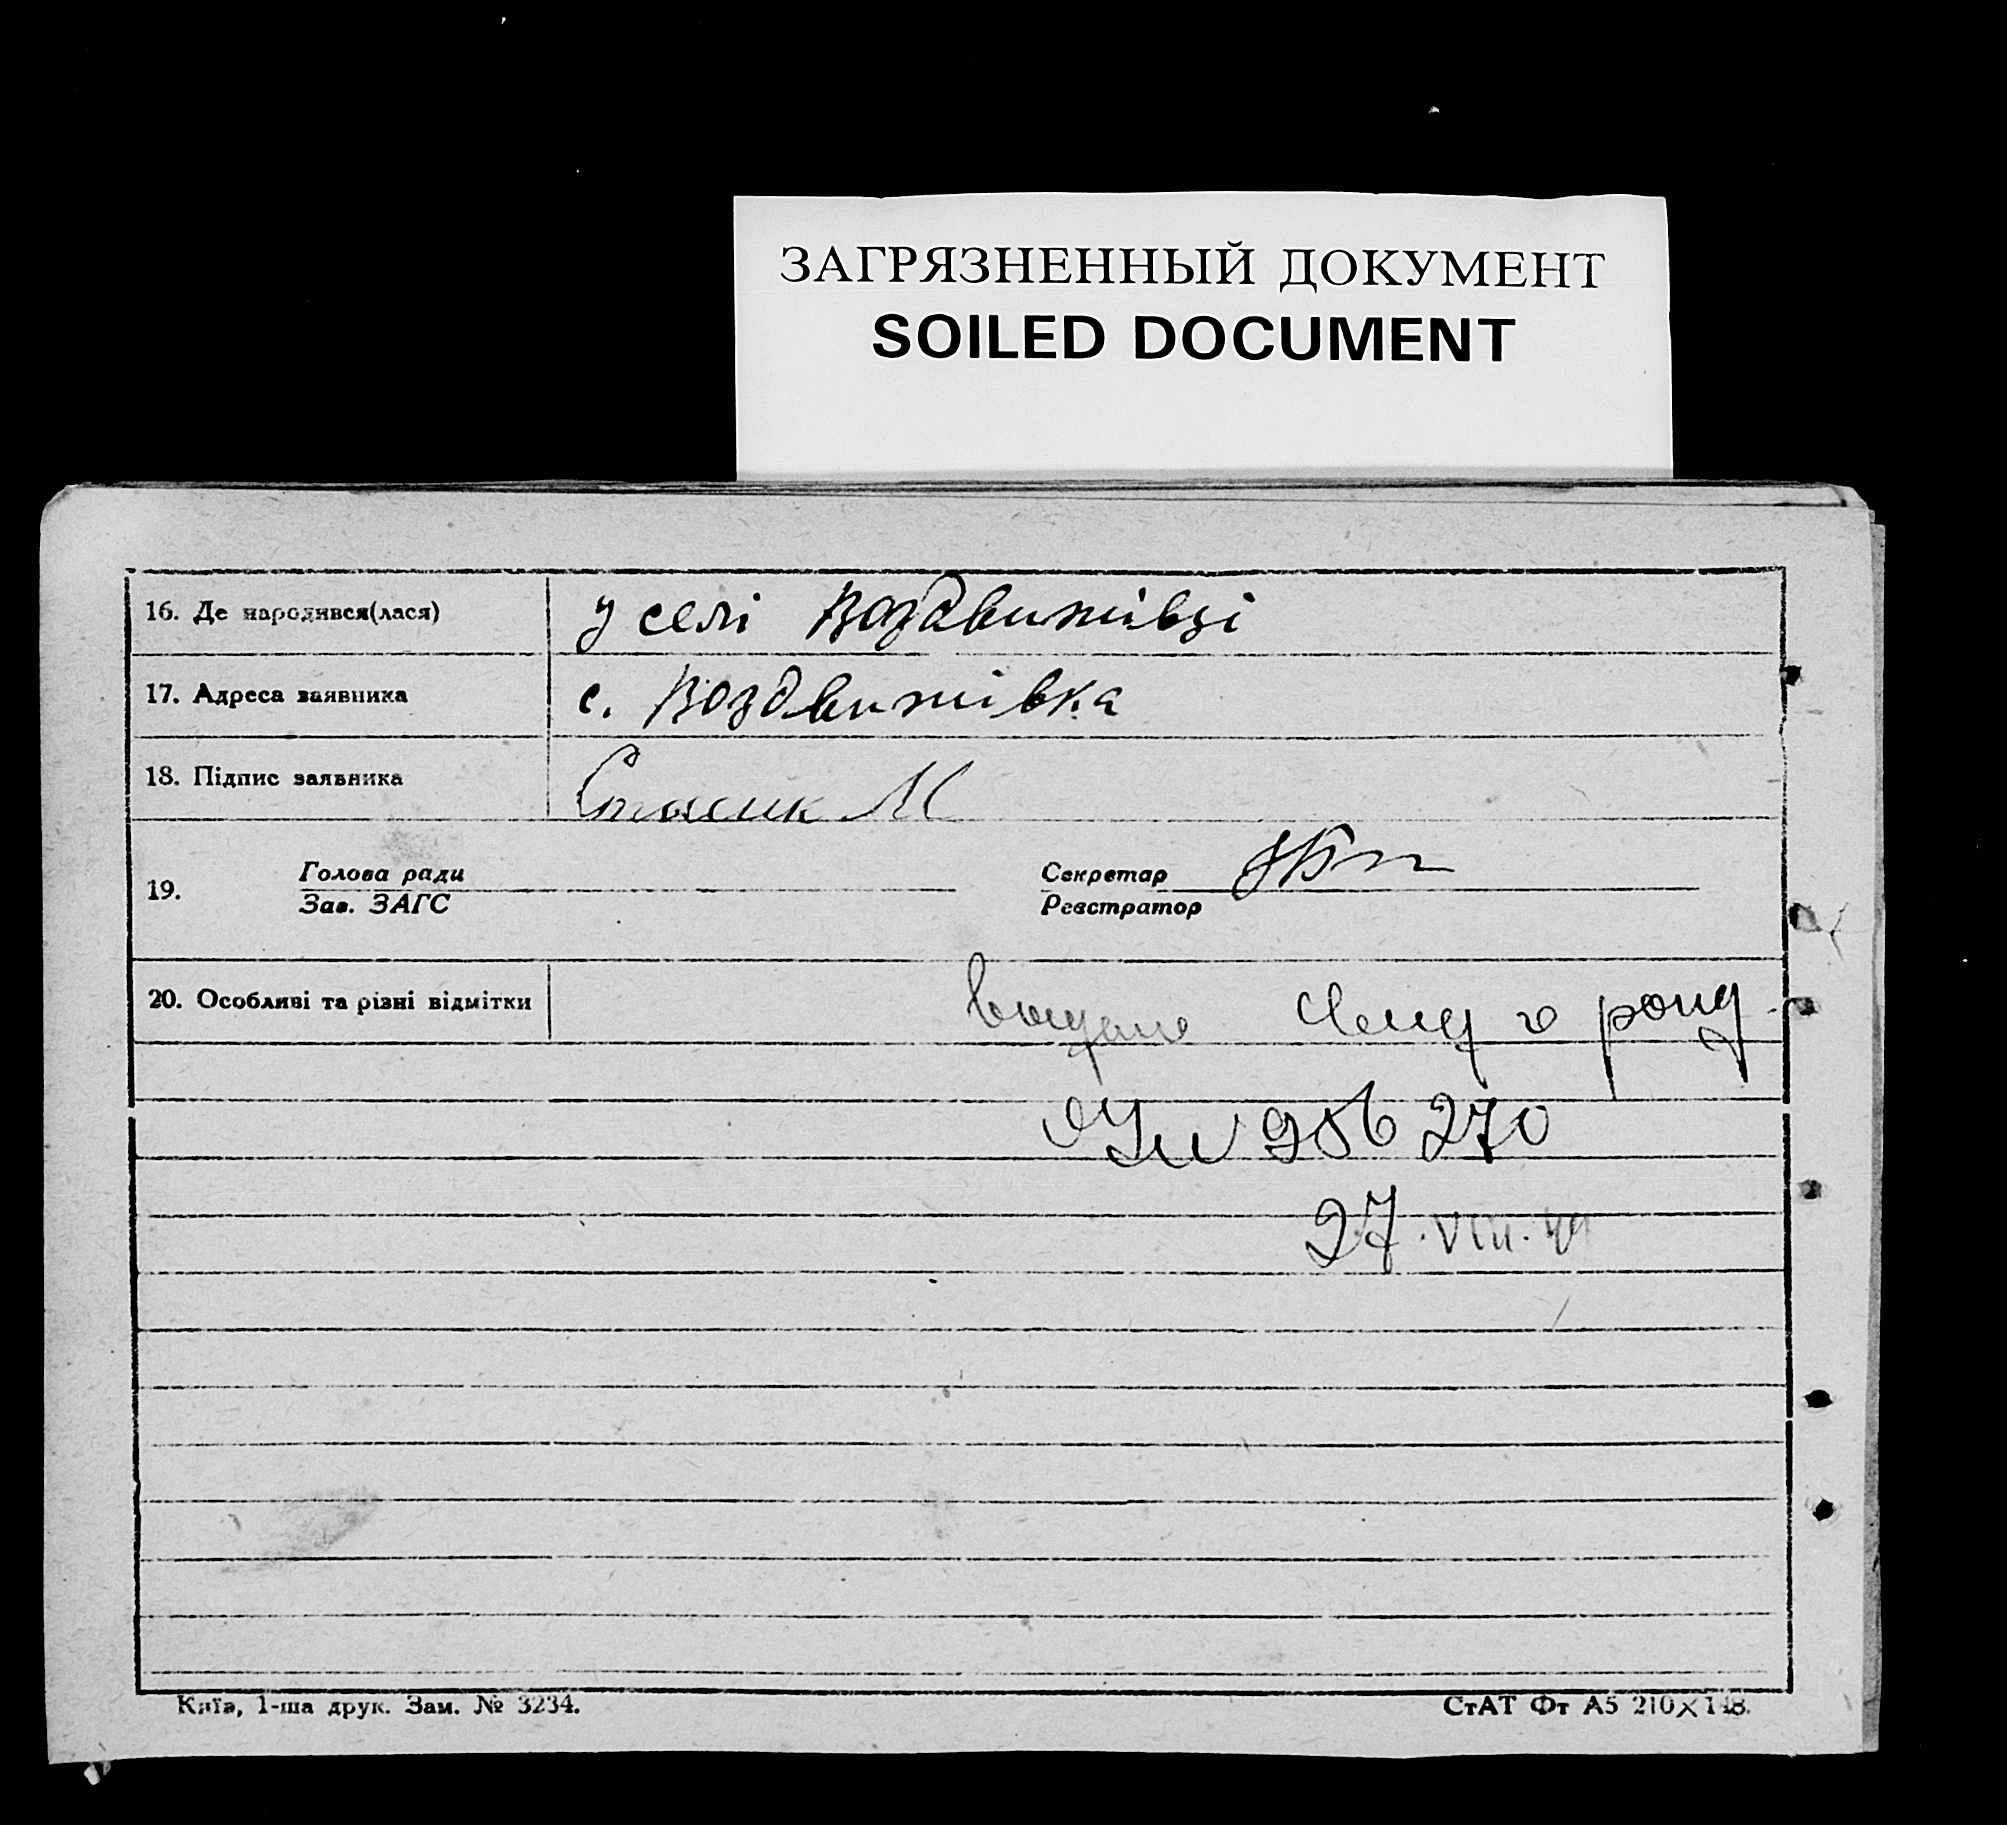 ЗАГРЯЗНЕННЫЙ ДОКУМЕНТ
SOILED DOCUMENT
16. Де народився(лася) у селі Воздвижівці
17. Адреса заявника с. Воздвижівка
18. Підпис заявника М
19. Голова ради
Зав. ЗАГС
Секретар
Реєстратор
20. Особливі та різні відмітки видано о рожд.
270
27.VIII.
Київ, 1-ша друк. Зам. № 3234.
СтАТ Фт А5 210×148.